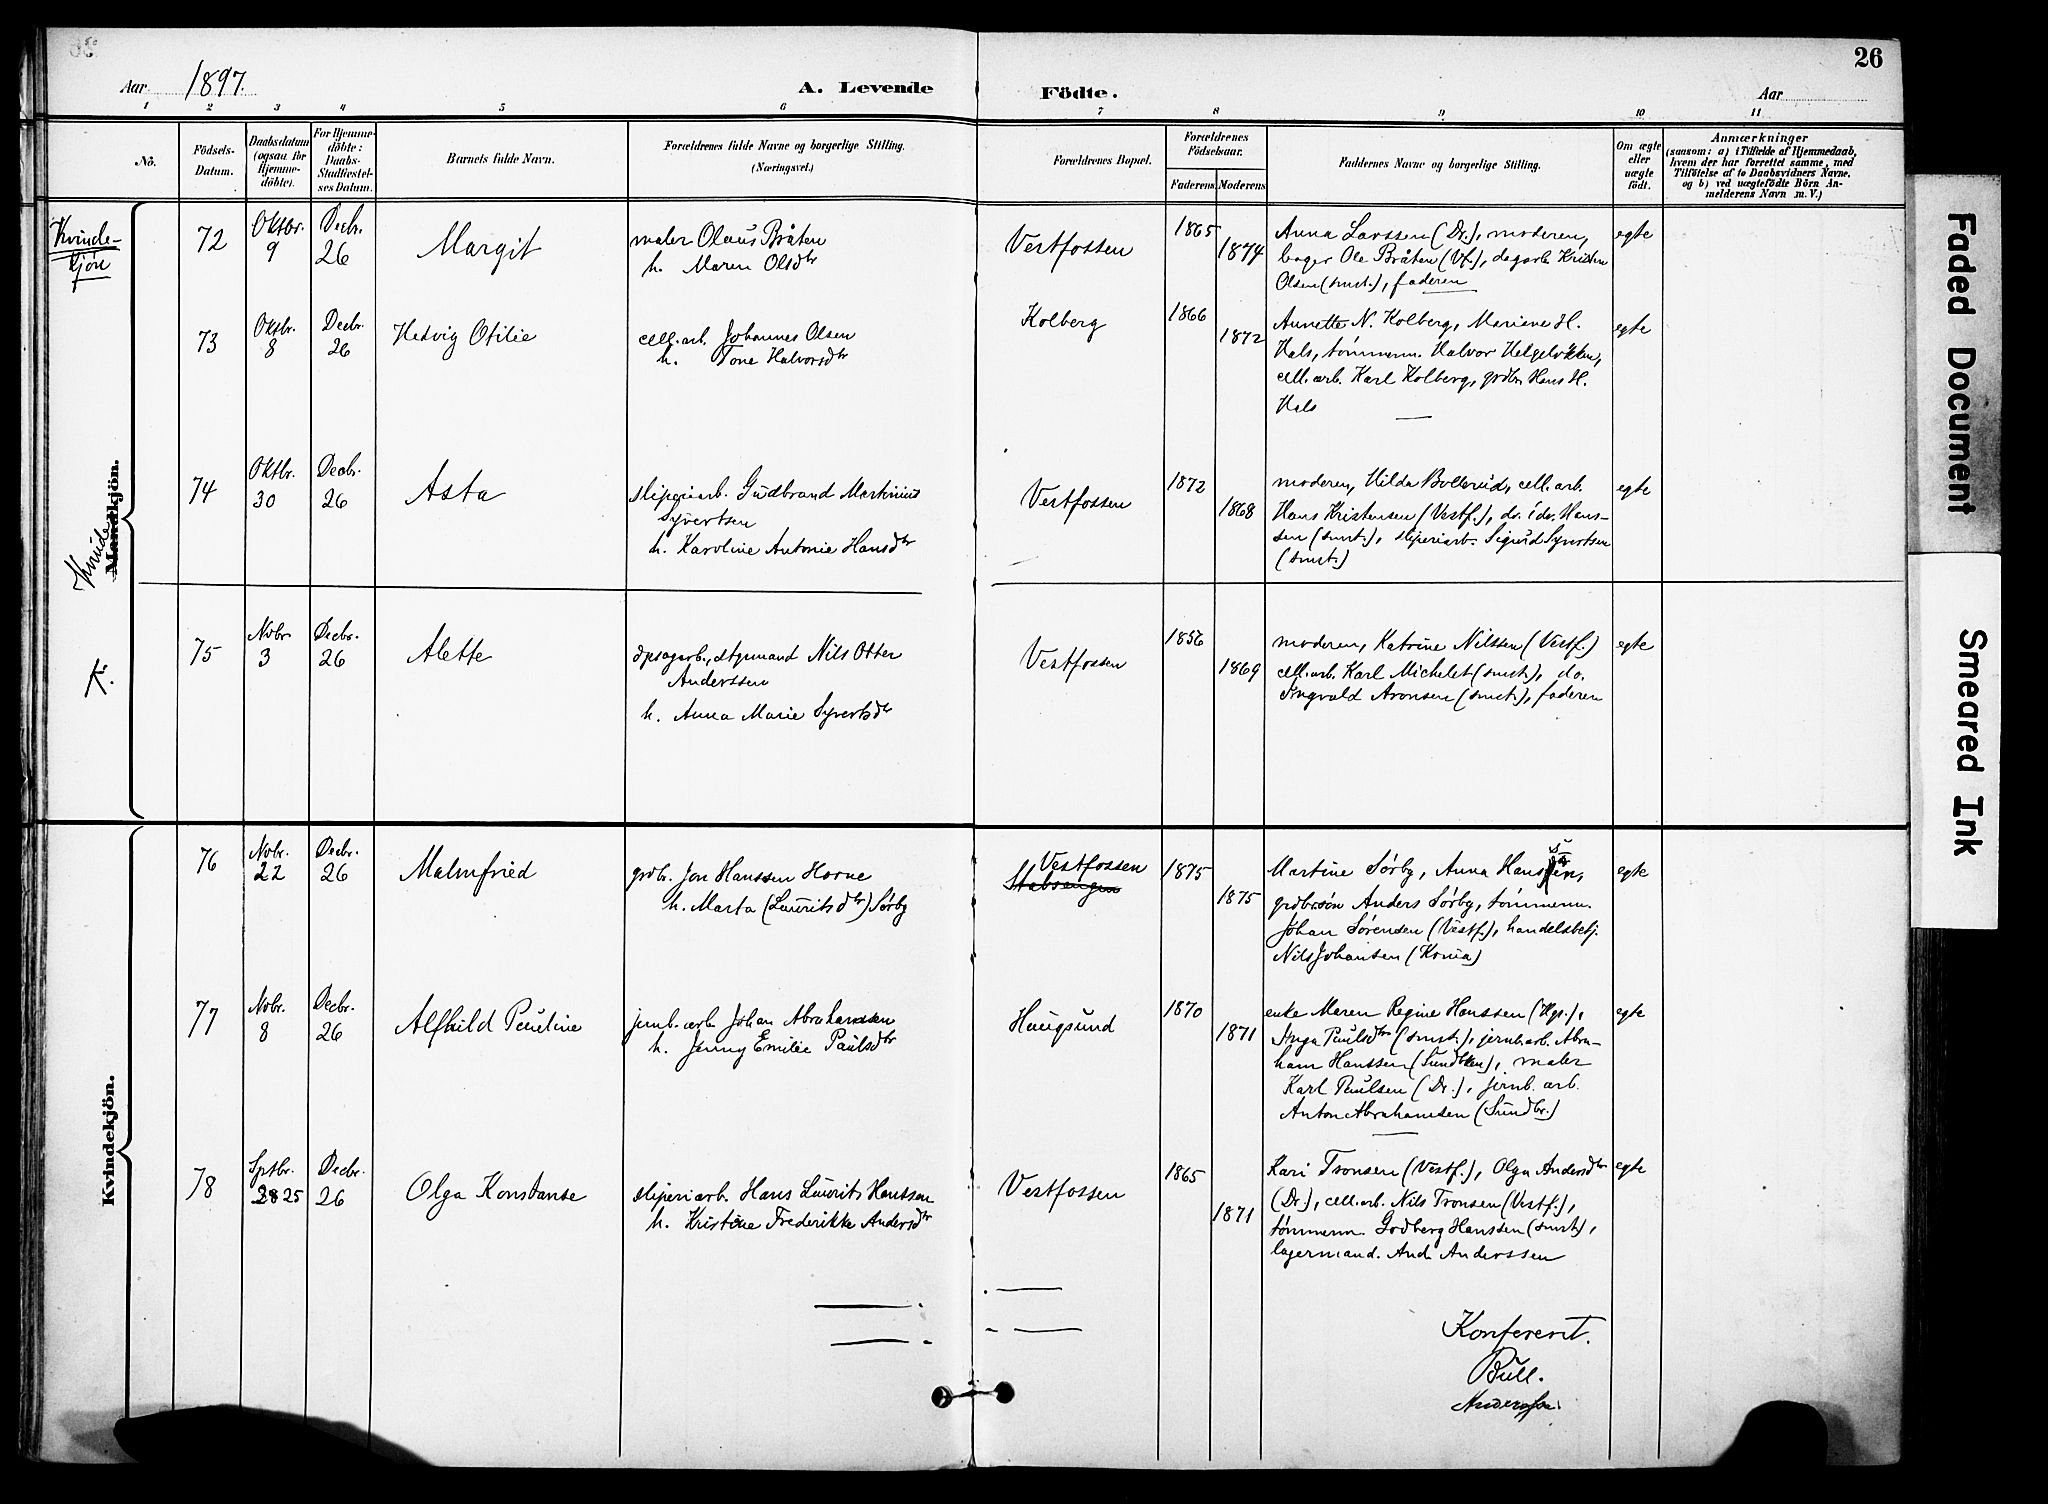 26
Aar 1897.
A. Levende Födte.
Aar
1 2 3 4 5 6 7 8 9 10 11
No.
Födsels-Datum.
Daabsdatum (ogsaa for Hjemme-döbte).
For Hjemme-döbte: Daabs-Stadfæstel-ses Datum.
Barnets fulde Navn.
Forældrenes fulde Navne og borgerlige Stilling.
(Næringsvei.)
Forældrenes Bopæl.
Forældrenes Födselsaar.
Faderens
Moderens
Faddernes Navne og borgerlige Stilling.
Om ægte eller uægte födt.
Anmærkninger
(saasom: a) i Tilfælde af Hjemmedaab,
hvem der har forrettet samme, med
Tilföielse af to Daabsvidners Navne,
og b) ved uægtefödte Börn An-
melderens Navn m. V.)
Kvinde-
kjøn
72 Oktbr. 9 Decbr. 26 Margit
maler Olaus Bråten
h. Maren Olsdtr
Vestfossen 1865 1874
Anna Larssen (Dr.), moderen,
bager Ole Bråten (Vf.), dagarb. Kristen
Olsen (smst.), faderen
egte
73 Oktbr. 8 Decbr. 26 Hedvig Otilie
cell.arb. Johannes Olsen
h. Tone Halvorsdtr
Kolberg 1866 1872
Annette N. Kolberg, Mariene H.
Hals, tømmerm. Halvor Helgeløkken,
cell. arb. Karl Kolberg, grdbr. Hans H.
Hals
egte
Mandkjön.
Kvinde
74 Oktbr. 30 Decbr. 26 Asta
sliperiarb. Gudbrand Martinius
Syvertsen
h. Karoline Antonie Hansdtr
Vestfossen 1872 1868
moderen, Hilda Bollerud, cell. arb.
Hans Kristensen (Vestf.), do. Hans-
sen (smst.), sliperiarb. Sigurd Syvertsen
(smst.)
egte
K.
75 Novbr. 3 Decbr. 26 Alette
dpsagarb., stgmand Nils Otter
Anderssen
h. Anna Marie Syvertsdtr
Vestfossen 1856 1869
moderen, Katrine Nilssen (Vestf.)
cell. arb. Karl Michelet (smst.), do.
Ingvald Aronsen (smst.), faderen
egte
Kvindekjön.
76 Novbr. 22 Decbr. 26 Malmfried
grdbr. Jon Hanssen Horne
h. Marta (Lauritsdtr) Sørby
Vestfossen
Stabsengen
1875 1875
Martine Sørby, Anna Hanssen,
grdbrsøn Anders Sørby, tømmerm.
Johan Sørensen (Vestf.), handelsbetj.
Nils Johansen (Kria)
egte
77 Novbr. 8 Decbr. 26 Alfhild Pauline
jernb. arb. Johan Abrahamsen
h. Jenny Emilie Paulsdtr
Haugsund 1870 1871
enke Maren Regine Hanssen (Hgs.),
Inga Paulsdtr (smst.), jernb.arb. Abra-
ham Hanssen (), maler
Karl Paulsen (Dr.), jernb. arb.
Anton Abrahamsen (Sundbr.)
egte
78 Sptbr. 28 25 Decbr. 26 Olga Konstanse
sliperiarb. Hans Laurits Hanssen
h. Kristine Frederikke Andersdtr
Vestfossen 1865 1871
Kari Tronsen (Vestf.), Olga Andersdtr
(Dr.), cell.arb. Nils Tronsen (Vestf.),
tømmerm. Godberg Hanssen (smst.),
lagermand. And. Anderssen
egte
Konfererit.
Bull.
Anderssen.
Faded Document
Smeared Ink